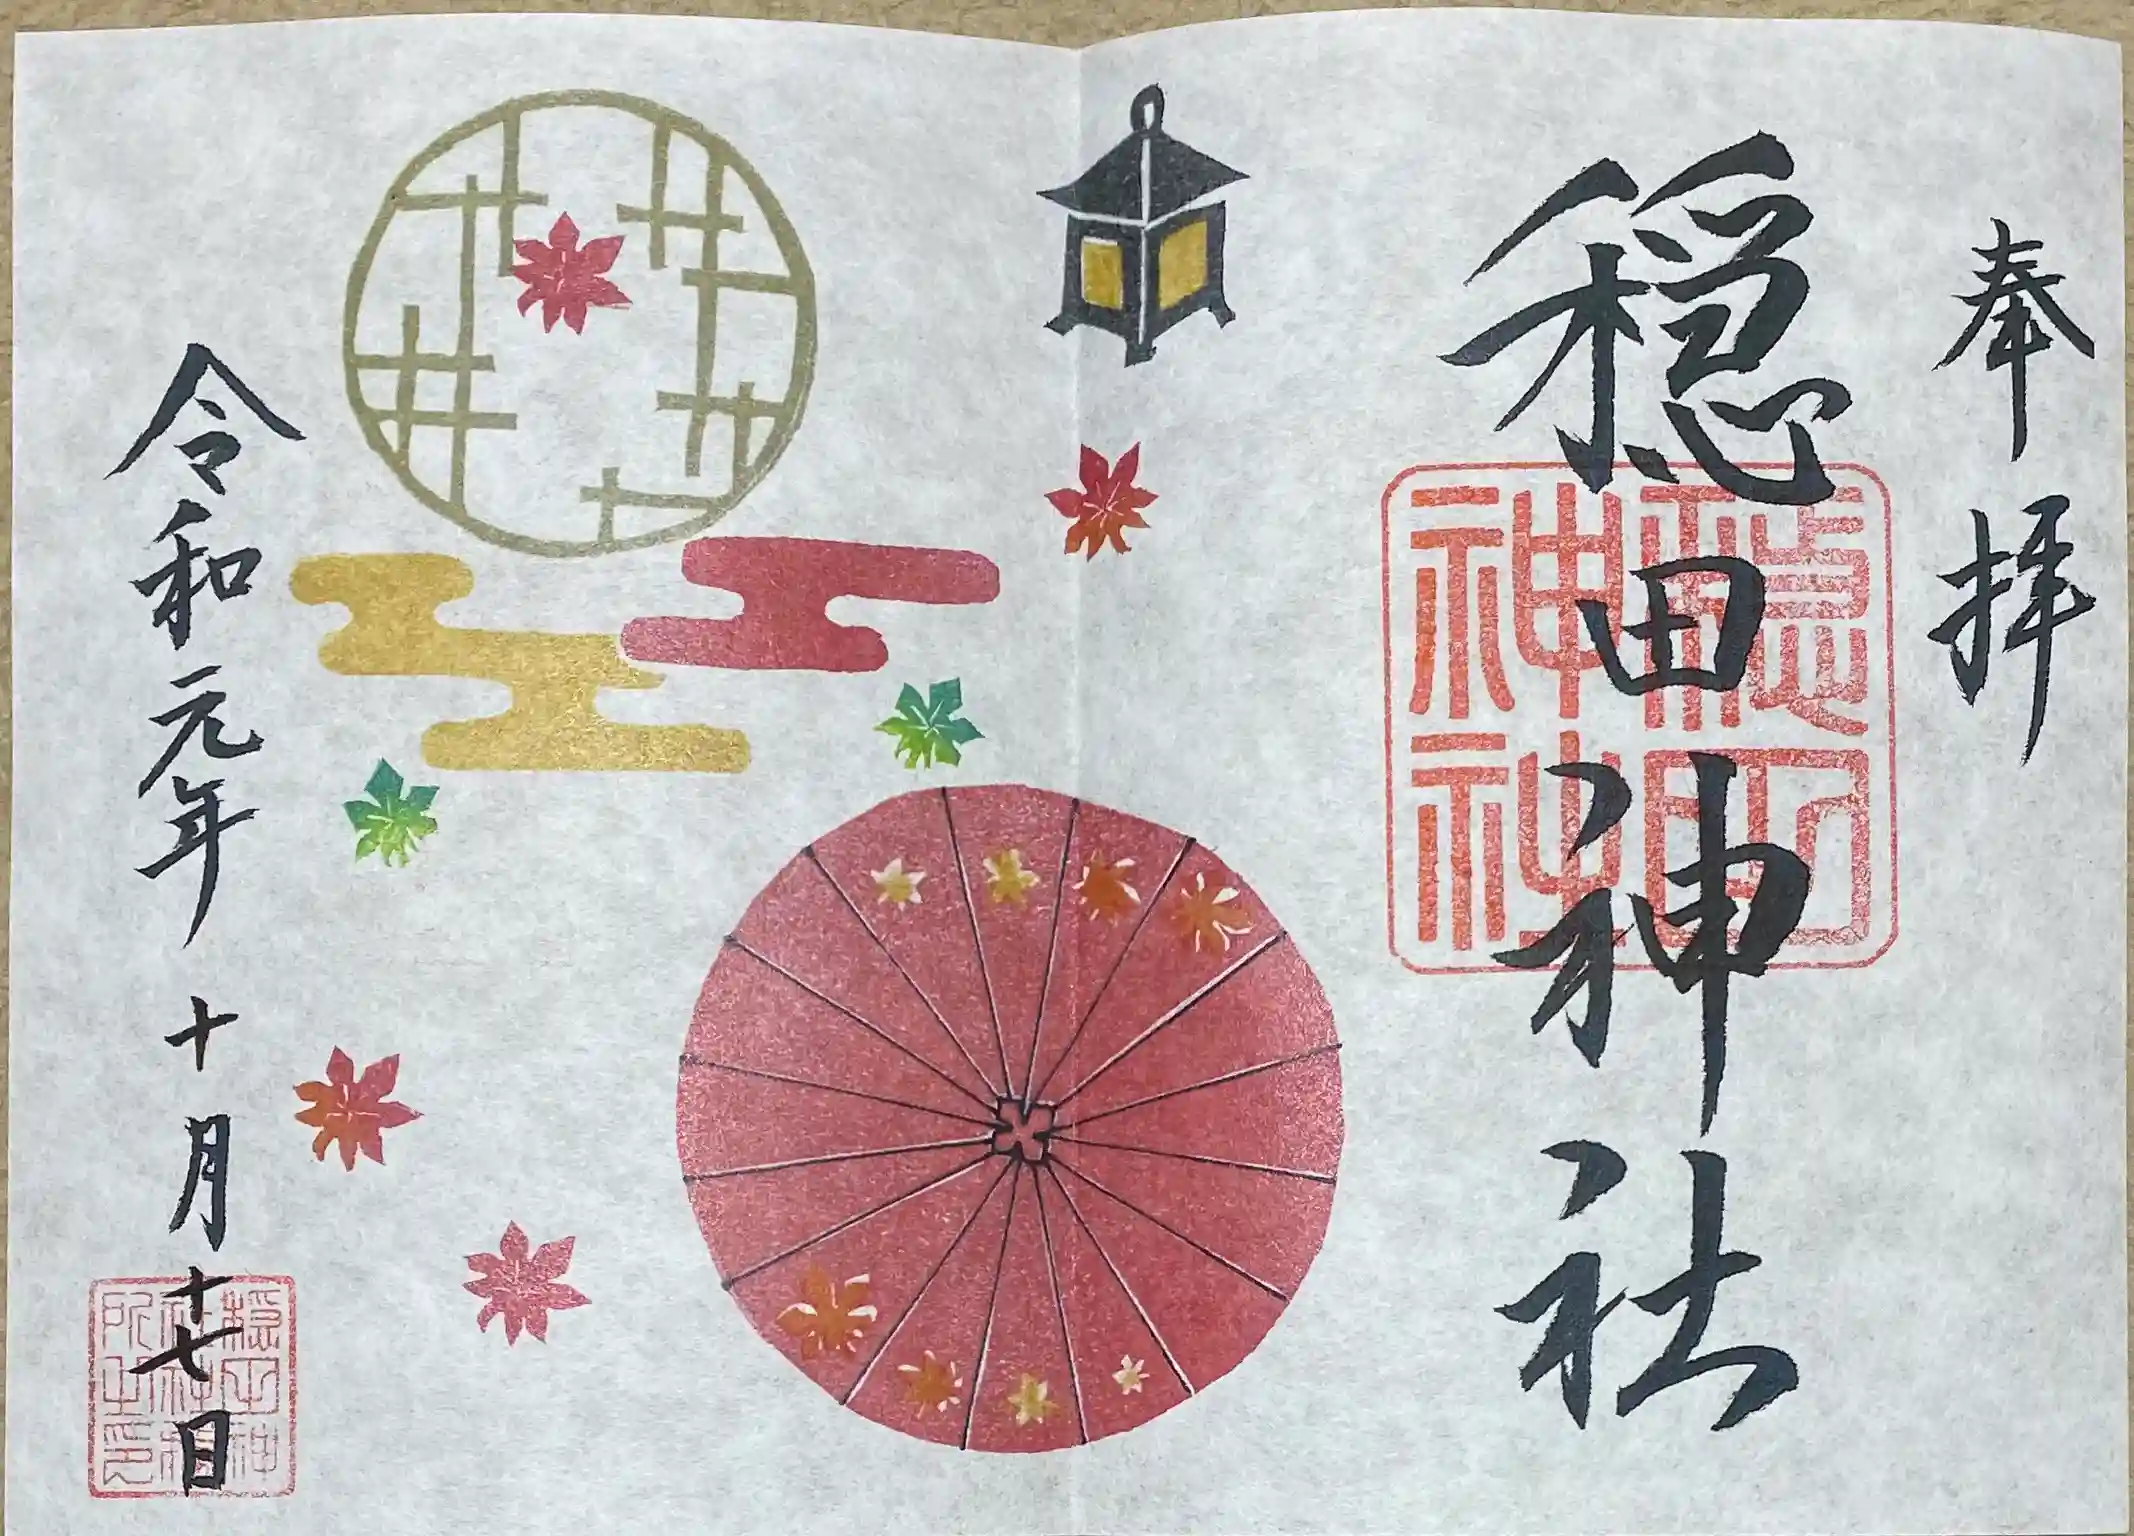 奉拝
穏田神社
穏田神社
令和元年十月十七日
穏田神社社務所之印